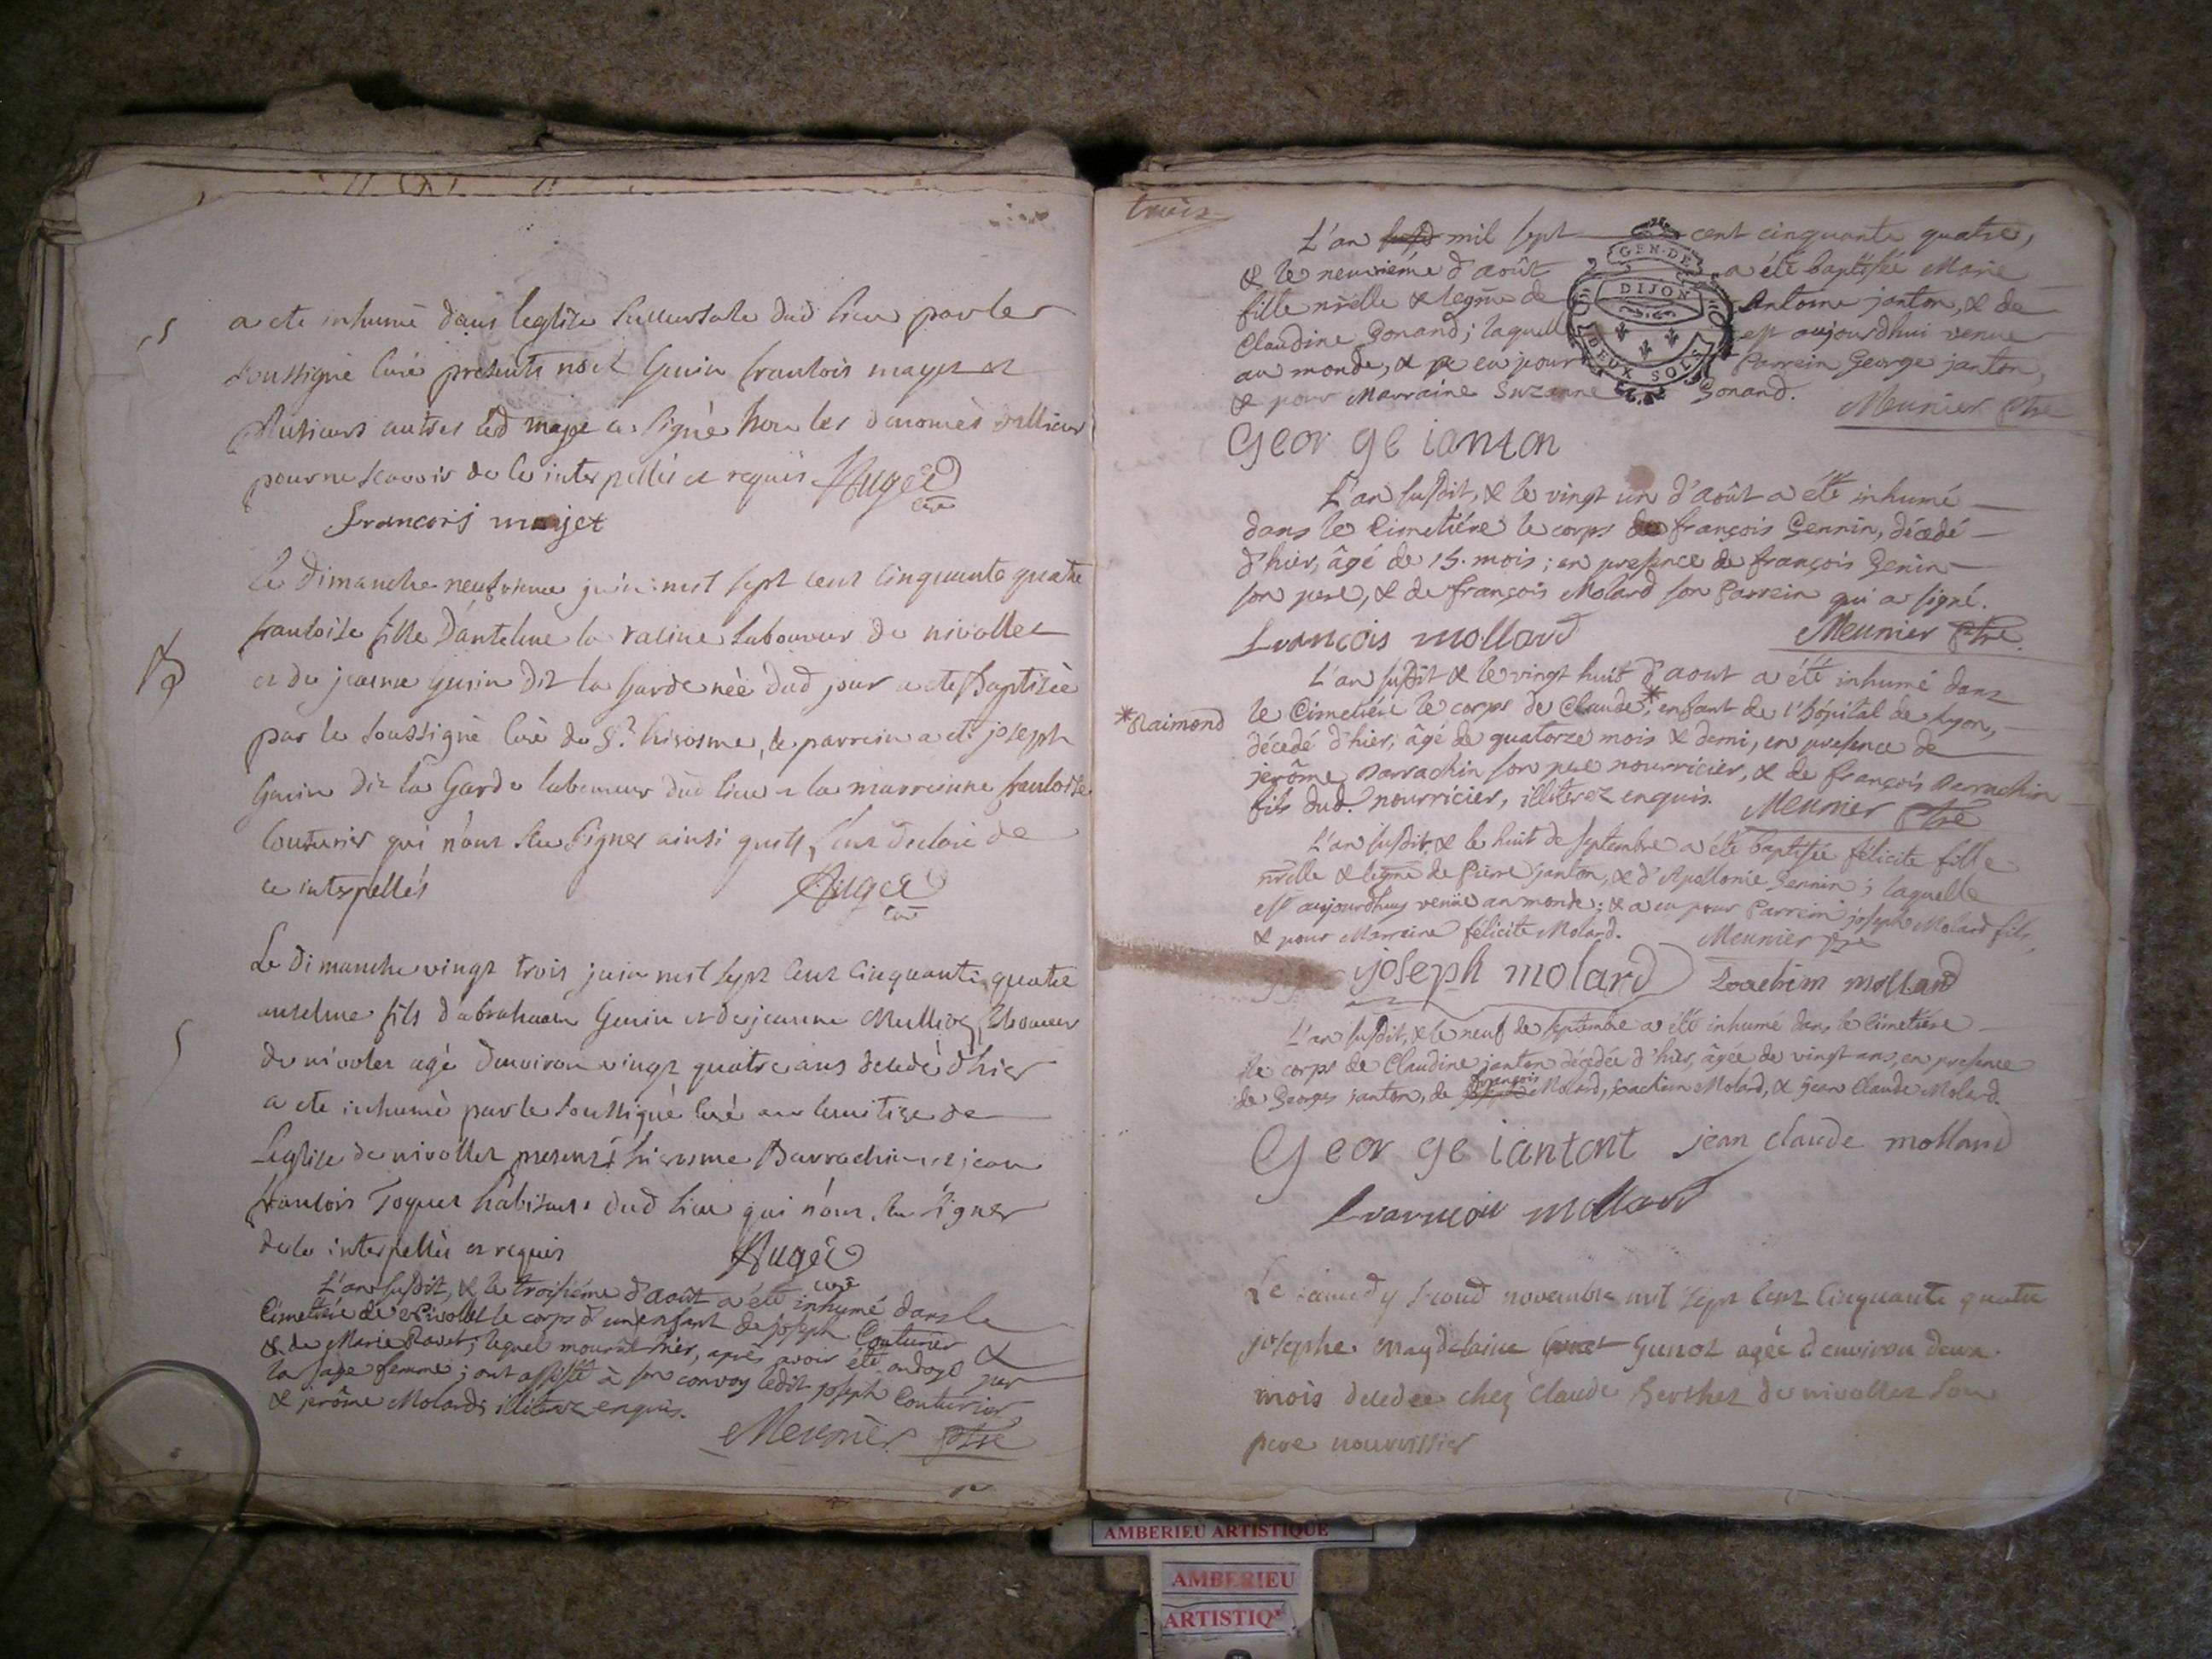 a ete inhumé dans leglise succursale dud lieu par le
soussigné curé presents genin francois mayet et
plusieurs autres led mayet a signé non les denomés dailleurs
pour ne scavoir de ce interpellés et requis Augée
curé
francois maijet
Le dimanche neufvieme juin mil sept cent cinquante quatre
francoise fille d'antelme la racine laboureur de nivollet
et de jeanne genin dit la Garde née dud jour a ete Baptisée
par le soussigné curé de St hierosme, le parrein a eté joseph
Genin dit la Garde laboureur dud lieu et la marreinne francoise
Couturier qui n'ont sceu signer ainsi quils ont declaré de
ce interpellés Augée
curé
Le dimanche vingt trois juin mil sept cent cinquante quatre
anselme fils d'abraham Genin et de jeanne
de nivolet agé denviron vingt quatre ans decedé d'hier
a ete inhumé par le soussigné curé au cimitiere de
Leglise de nivollet presents hierosme Barrachin et jean
francois Toquet habitants dud lieu qui n'ont sceu signer
de ce interpellés et requis Augée
curé
L'an susdit, & le troisiéme d'août a été inhumé dans le
Cimetiére de Nivollet le corps d'un enfant de joseph Couturier
& de Marie Ravet; lequel mourût hier, après avoir été ondoyé par
la sage femme; ont assisté à son convoy ledit joseph Couturier,
& jerôme Molard; illiterez enquis.
Meunier ptre
trois
L'an mil sept cent cinquante quatre,
& le neuvieme d'août a été baptisée Marie
fille nrelle & legme de Antoine janton, & de
Claudine Bonand; laquelle est aujourdhui venue
au monde, & a eu pour Parrein George janton,
& pour Marraine Suzanne Bonand. Meunier ptre
GEN. DE
DIJON
DEUX SOLS
Geor ge ianton
L'an susdit, & le vingt un d'août a été inhumé
dans le Cimetiére le corps de françois Gennin, décedé
d'hier, âgé de 15. mois; en presence de françois Genin
son pere, & de françois Molard son Parrein qui a signé.
francois mollard Meunier ptre.
L'an susdit & le vingt huit d'aout a été inhumé dans
le Cimetiére le corps de Claude*, enfant de l'hôpital de Lyon,
*Raimond
décedé d'hier, âgé de quatorze mois & demi, en presence de
jerôme Barrachin son pere nourricier, & de françois Barrachin
fils dud. nourricier, illiterez enquis. Meunier ptre
L'an susdit & le huit de septembre a été baptisée félicite fille
nrelle & legme de Pierre janton, & d'Apollonie Gennin; laquelle
est aujourdhuy venüe au monde; & a eu pour Parrein joseph Molard fils,
& pour Marraine félicite Molard. Meunier ptre
joseph molard Joachim mollard
L'an susdit, & le neuf de septembre a été inhumé dans le Cimetiére
le corps de Claudine janton décedée d'hier, âgée de vingt ans, en presence
de Georges janton, de françois Molard, joachim Molard, & jean Claude Molard.
Geor ge iantont jean claude mollard
francois mollard
Le samedy second novembre mil sept cent cinquante quatre
josephe magdelaine Gunot agée d'environ deux
mois decedée chez Claude Berthet de nivollet son
pere nourrissier
AMBERIEU ARTISTIQUE
AMBERIEU
ARTISTIQ